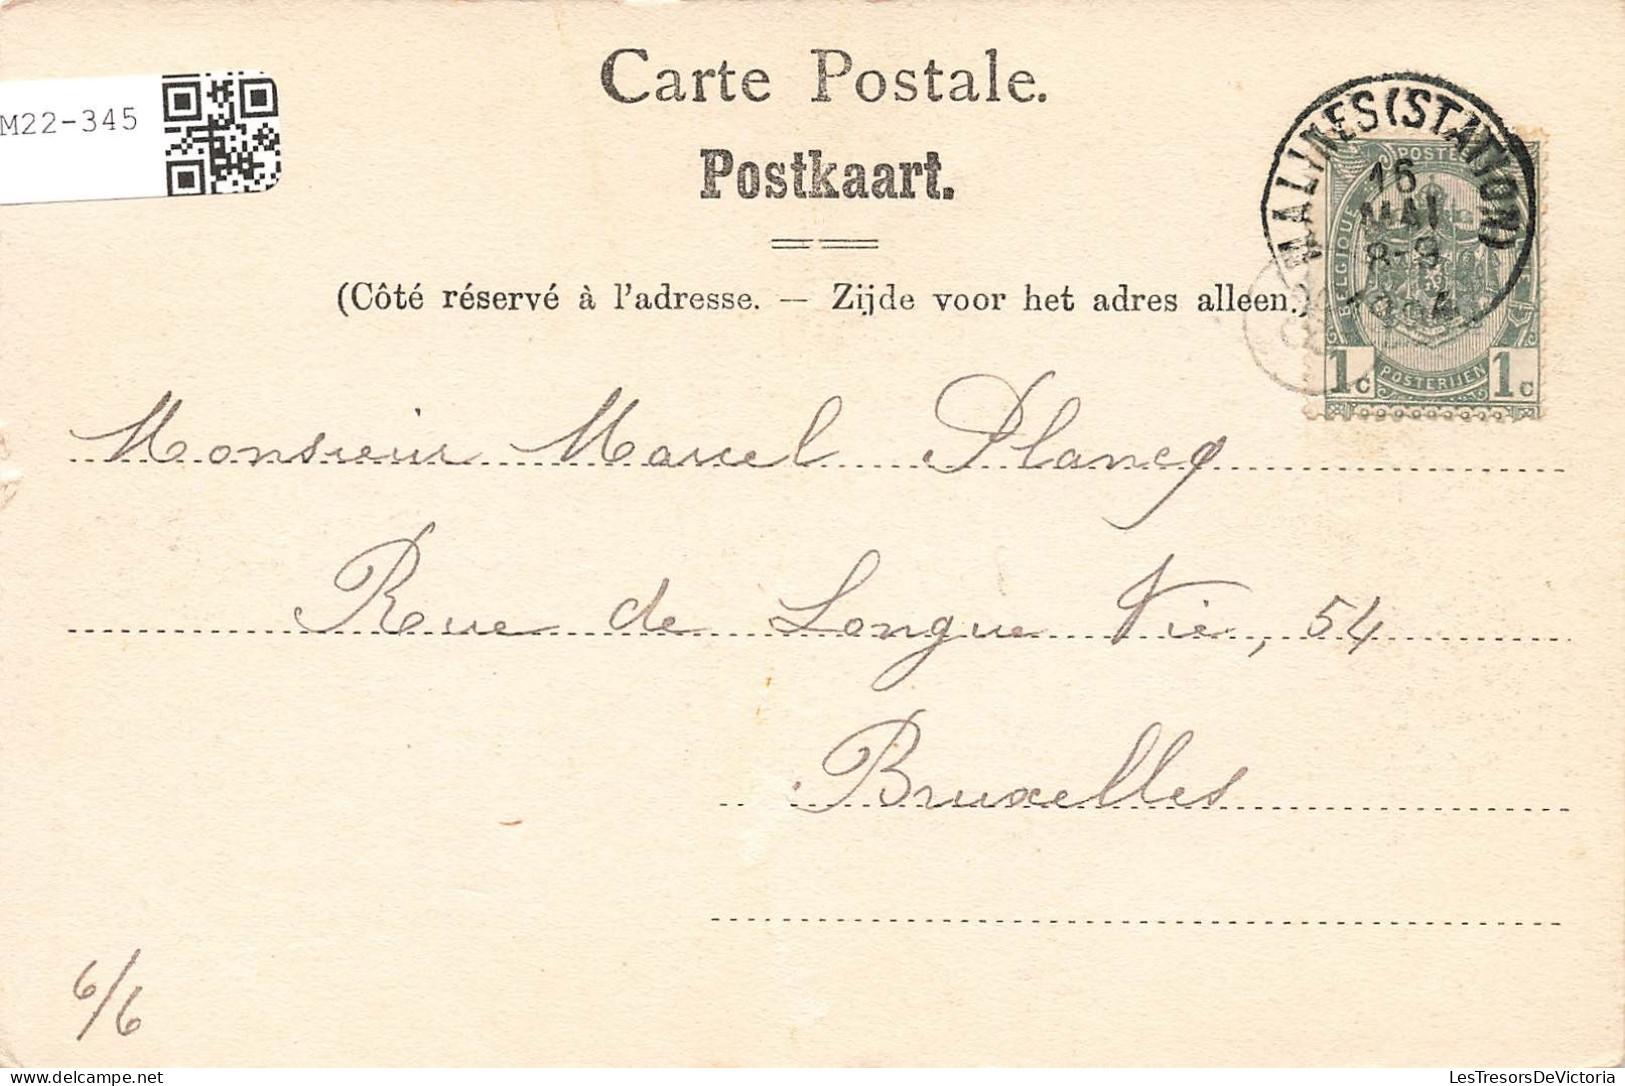 Carte Postale.
M22-345
Postkaart.
(Côté réservé à l'adresse. — Zijde voor het adres alleen.)
MALINES (STATION)
16
MAI
8-9
1904
POSTES
BELGIQUE
POSTERIJEN
1c 1c
Monsieur Marcel Plancq
Rue de Longue Vie, 54
Bruxelles
6/6
LesTresorsDeVictoria